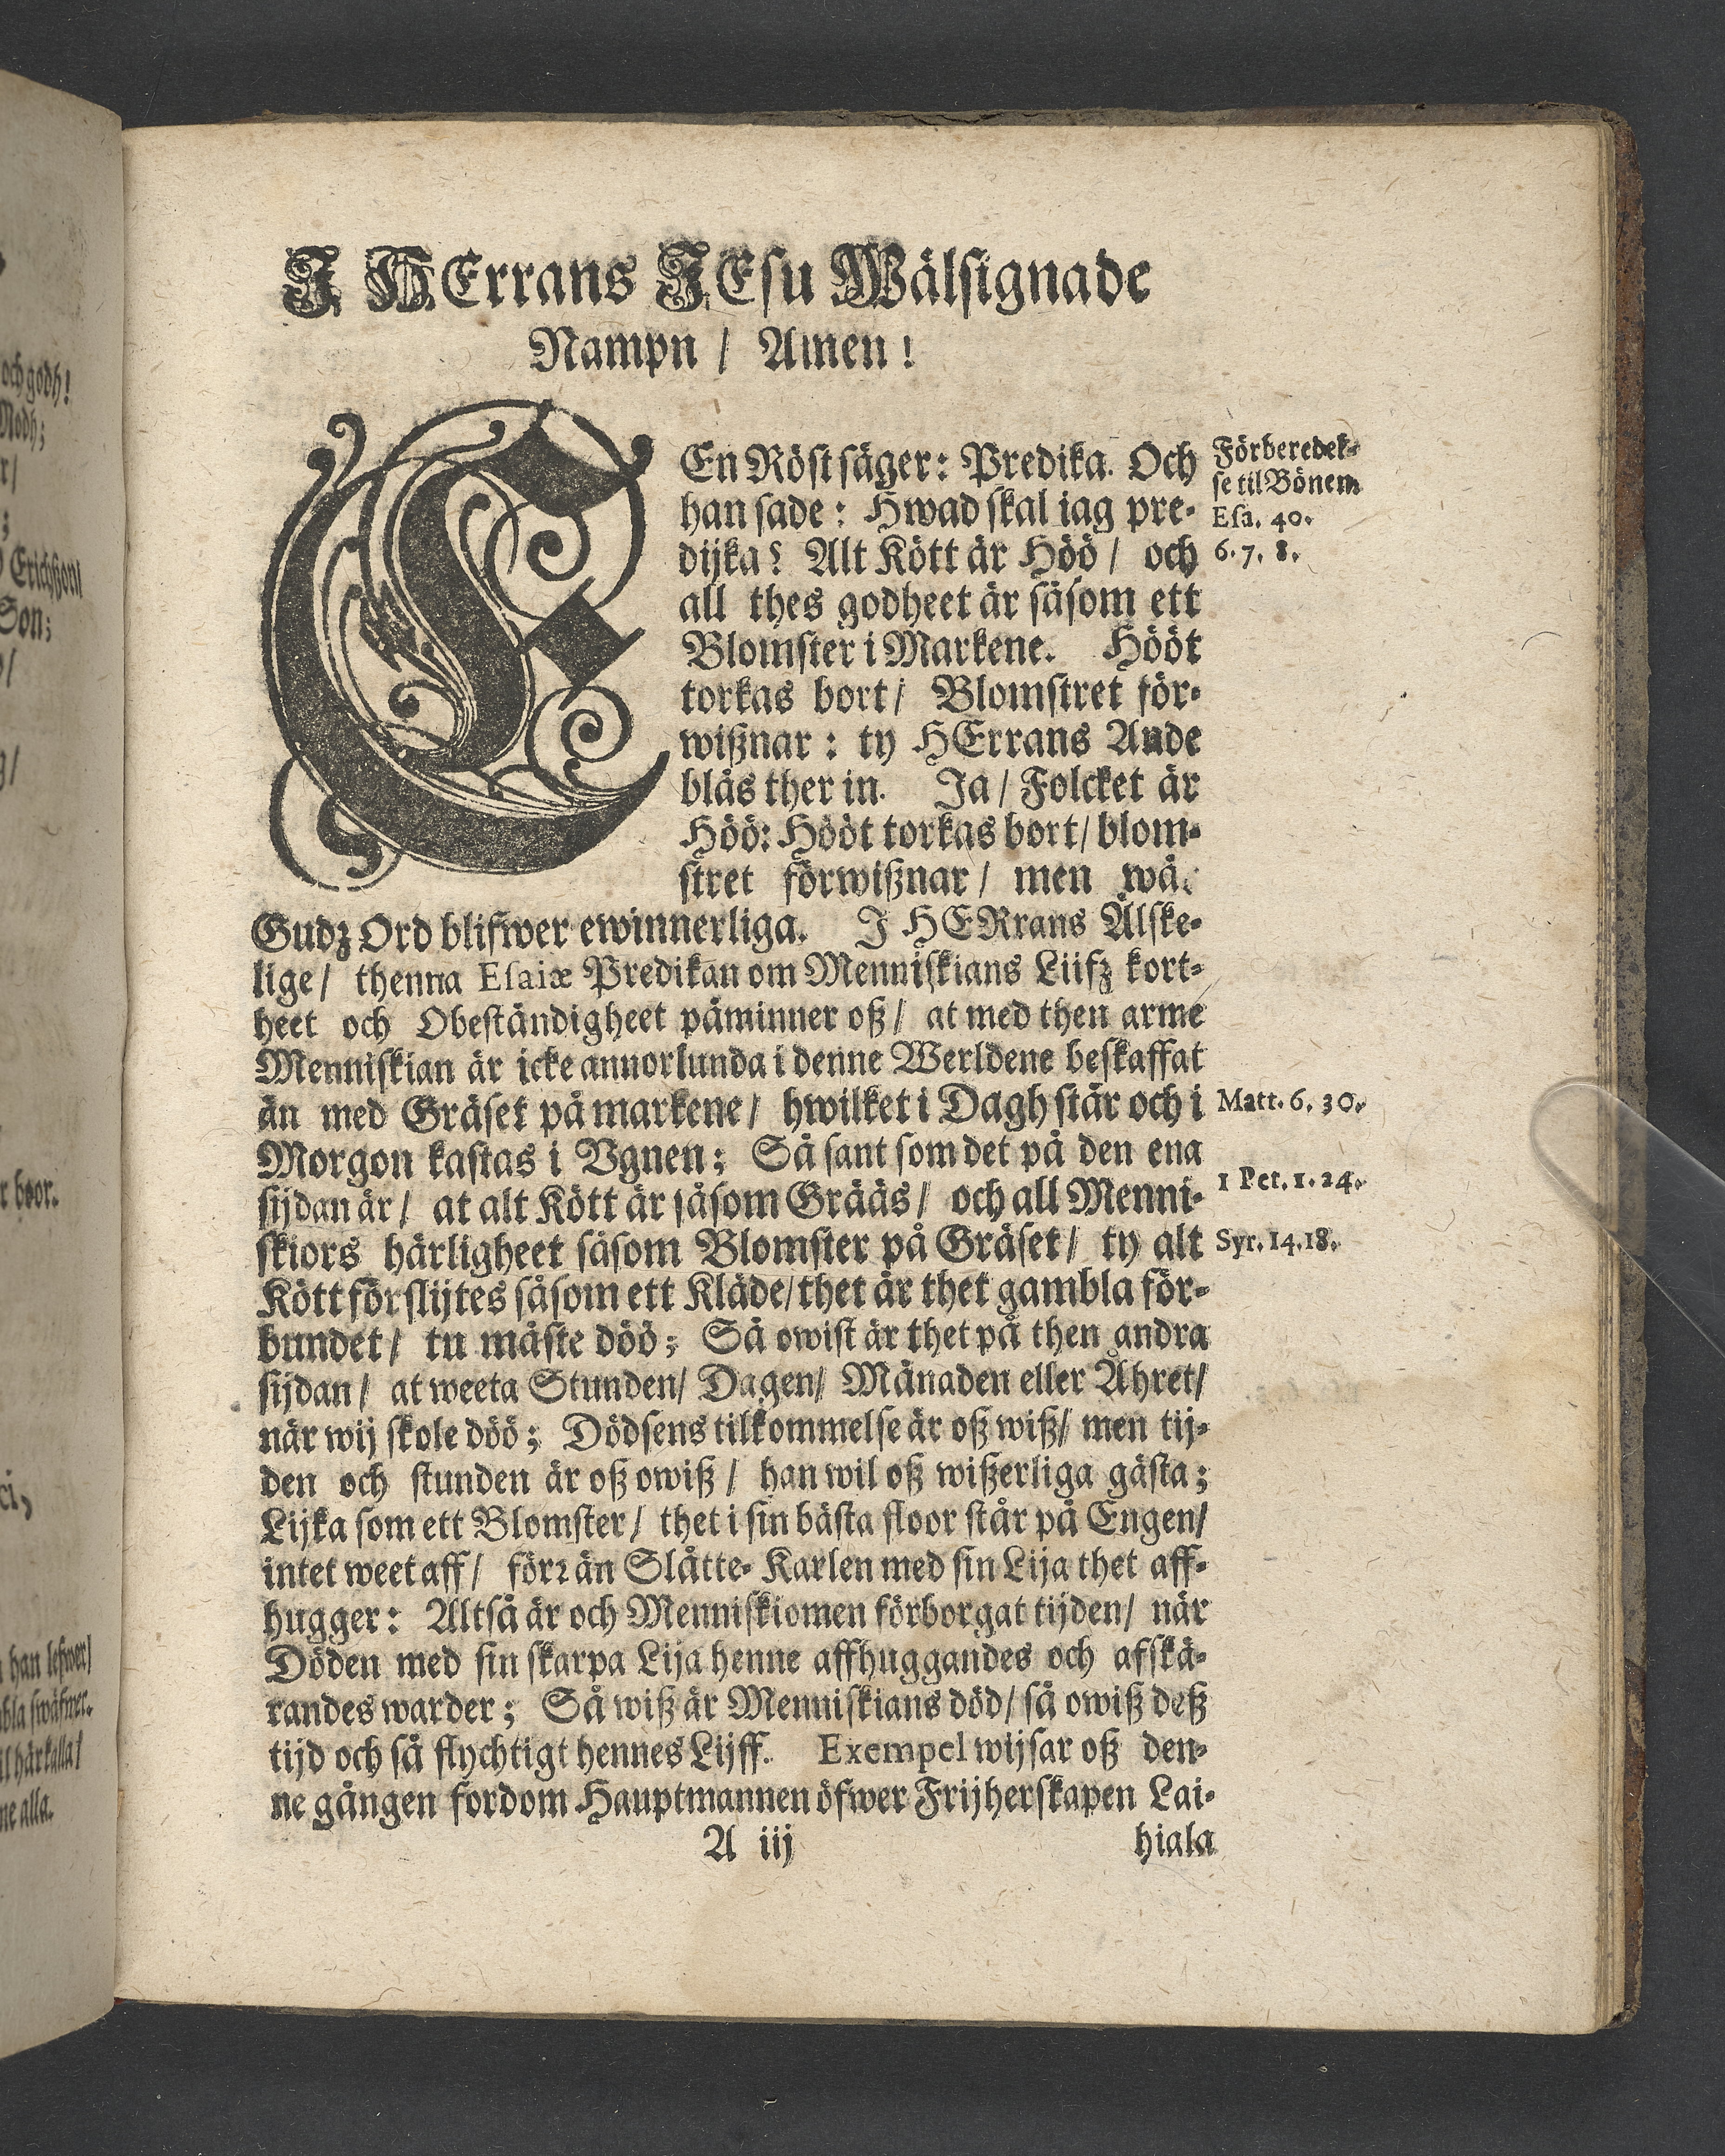 J HErrans JEsu Wälsignade
Nampn / Amen!
En Röst säger: Predika. Och
han sade: Hwad skal iag pre-
dijka? Alt Kött är Höö / och
all thes godheet är såsom ett
Blomster i Markene. Hööt
torkas bort / Blomstret för-
wißnar: ty HErrans Ande
blås ther in. Ja / Folcket är
Höö: Hööt torkas bort / blom-
stret förwißnar / men wå.
Gudz Ord blifwer ewinnerliga. J HERrans Älske-
lige / thenna Esaiæ Predikan om Menniskians Liifz kort-
heet och Obeständigheet påminner oß / at med then arme
Menniskian är icke annorlunda i denne Werldene beskaffat
än med Gräset på markene / hwilket i Dagh står och i
Morgon kastas i Vgnen; Så sant som det på den ena
sijdan är / at alt Kött är såsom Grääs / och all Menni-
skiors härligheet såsom Blomster på Gräset / ty alt
Kött förslijtes såsom ett Kläde / thet är thet gambla för-
bundet / tu måste döö; Så owist är thet på then andra
sijdan / at weeta Stunden / Dagen / Månaden eller Åhret /
när wij skole döö; Dödsens tilkommelse är oß wiß / men tij-
den och stunden är oß owiß / han wil oß wißerliga gästa;
Lijka som ett Blomster / thet i sin bästa floor står på Engen /
intet weet aff / förꝛ än Slåtte-Karlen med sin Lija thet aff-
hugger: Altså är och Menniskiomen förborgat tijden / när
Döden med sin skarpa Lija henne affhuggandes och afskä-
randes warder; Så wiß är Menniskians död / så owiß deß
tijd och så flychtigt hennes Lijff. Exempel wijsar oß den-
ne gången fordom Hauptmannen öfwer Frijherskapen Lai-
A iij hiala
Förberedel-
se til Bönem
Esa. 40.
6. 7. 8.
Matt. 6. 30.
1 Pet. 1. 24.
Syr. 14. 18.
och godh!
Modh;
Erichßon
Son;
boor.
han lefwer /
swäfwer.
härkalla /
alla.